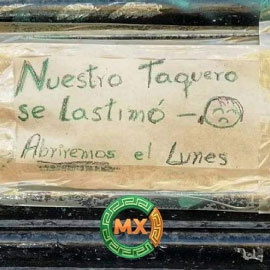 Nuestro Taquero
se Lastimó –
Abriremos el Lunes
MX